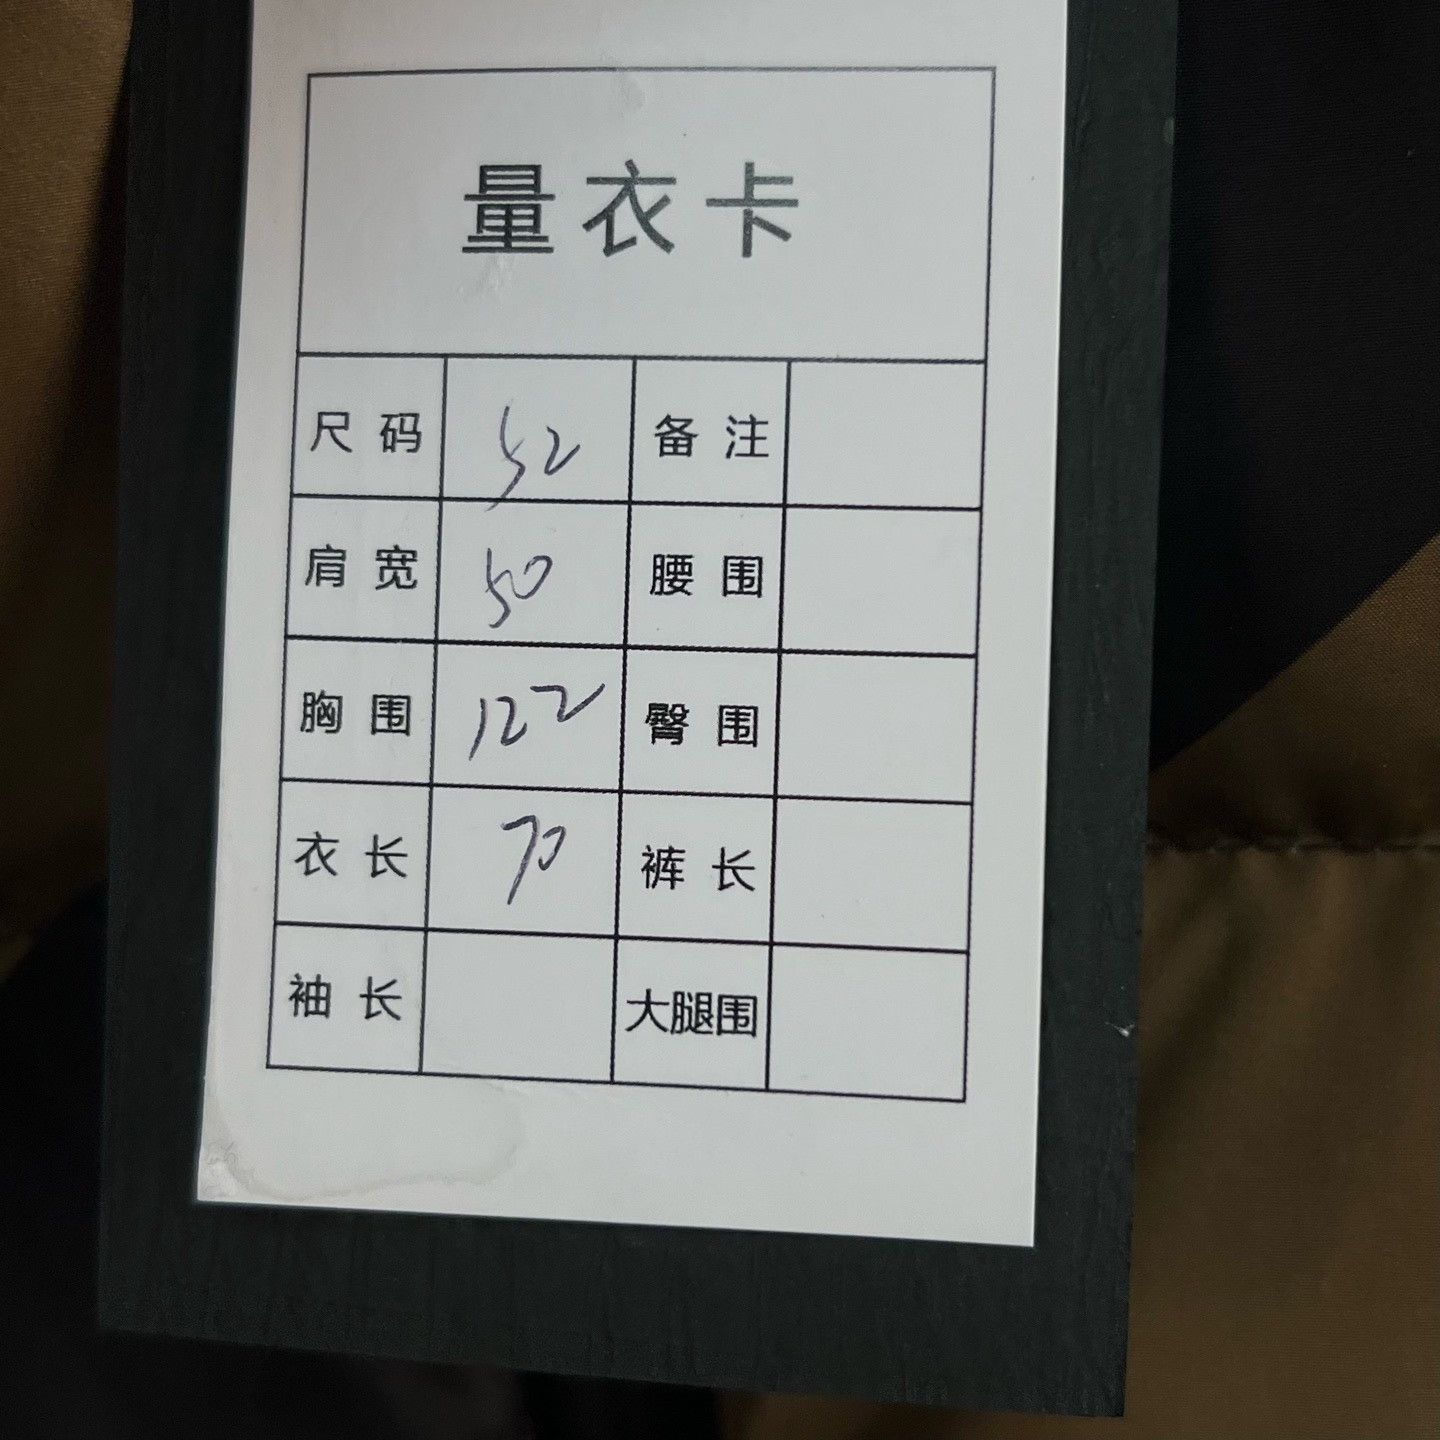 量衣卡
尺码 52 备注
肩宽 50 腰围
胸围 122 臀围
衣长 70 裤长
袖长 大腿围